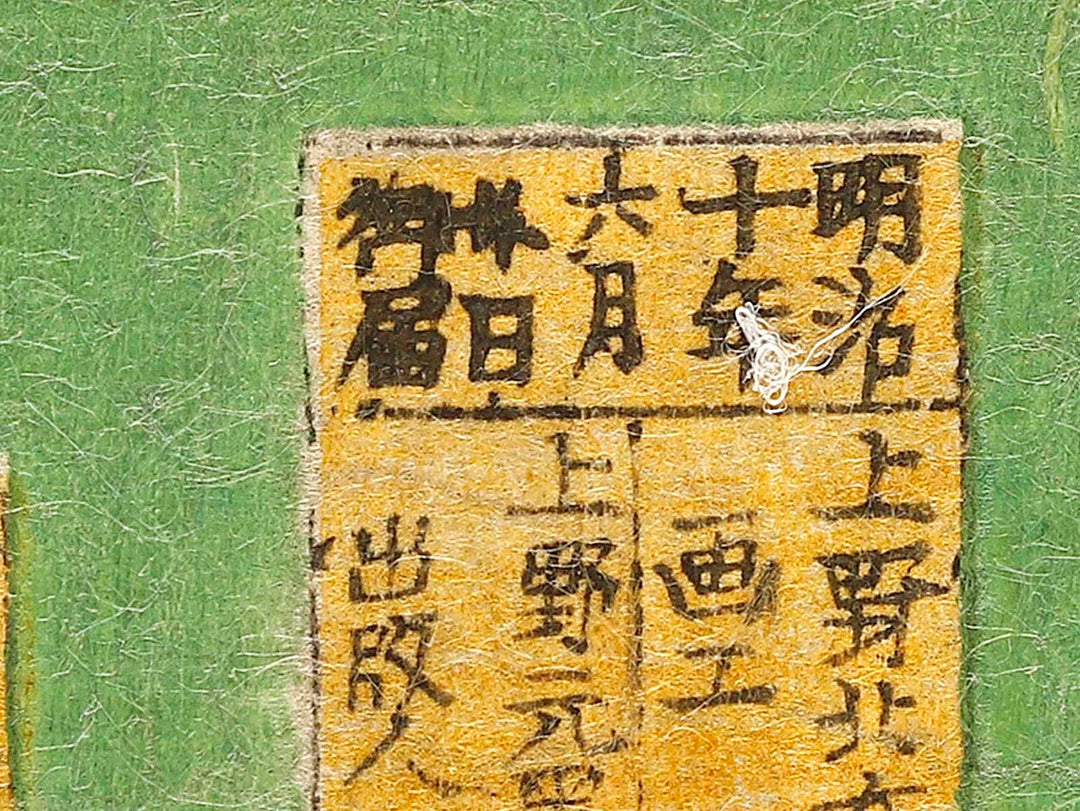 明治
十年
六月
日
御届
上野北
画工
上野元
出版人